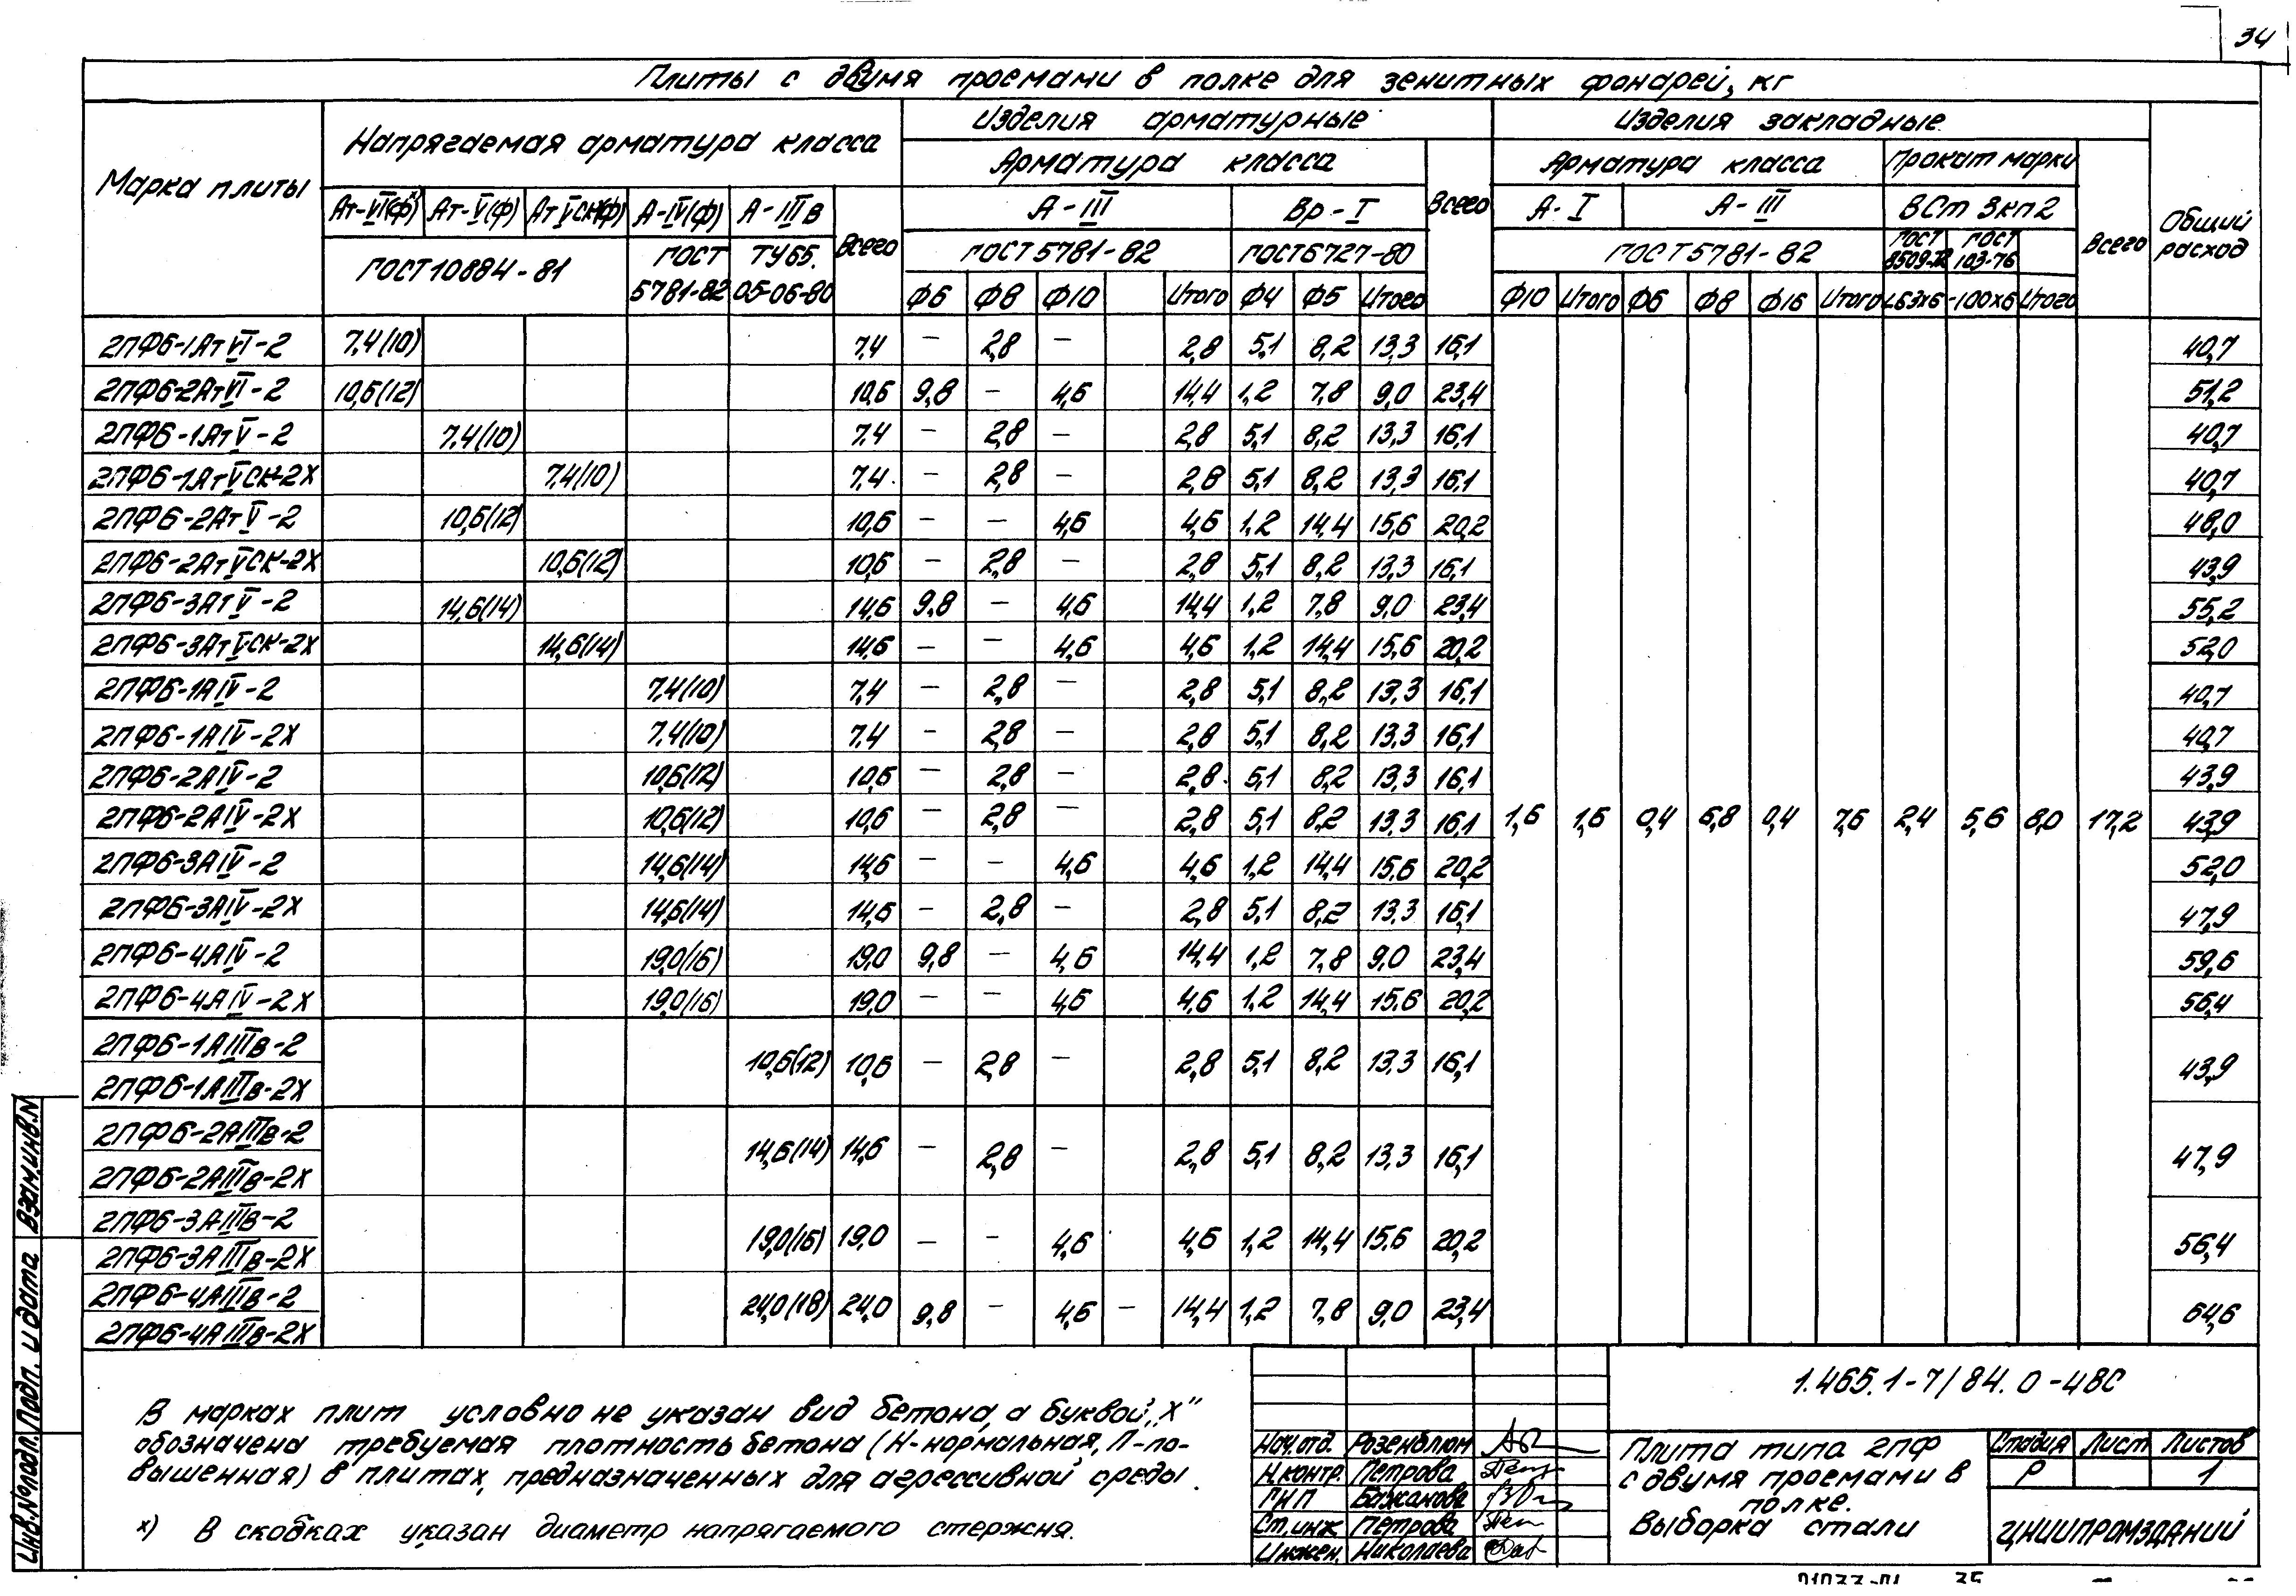 34
Плиты с двумя проемами в полке для зенитных фонарей, кг
Марка плиты
Напрягаемая арматура класса
Изделия арматурные
Изделия закладные
Общий расход
Арматура класса
Всего
Арматура класса
Прокат марки
Всего
Ат-VI(ф)ˣ Ат-V(ф) Ат VСК(ф) А-IV(ф) А-IIIв Всего
А-III Вр-I А-I А-III ВСт 3кп2
ГОСТ 10884-81 ГОСТ 5781-82 ТУ65. 05-06-80
ГОСТ 5781-82 ГОСТ 6727-80 ГОСТ 5781-82 ГОСТ 8509-72 ГОСТ 103-76
Ф6 Ф8 Ф10 Итого Ф4 Ф5 Итого Ф10 Итого Ф6 Ф8 Ф16 Итого L63х6 -100х6 Итого
2ПФ6-1АтVI-2 7,4(10) 7,4 – 2,8 – 2,8 5,1 8,2 13,3 16,1 40,7
2ПФ6-2АтVI-2 10,6(12) 10,6 9,8 – 4,6 14,4 1,2 7,8 9,0 23,4 51,2
2ПФ6-1АтV-2 7,4(10) 7,4 – 2,8 – 2,8 5,1 8,2 13,3 16,1 40,7
2ПФ6-1АтVСК-2Х 7,4(10) 7,4 – 2,8 – 2,8 5,1 8,2 13,3 16,1 40,7
2ПФ6-2АтV-2 10,6(12) 10,6 – – 4,6 4,6 1,2 14,4 15,6 20,2 48,0
2ПФ6-2АтVСК-2Х 10,6(12) 10,6 – 2,8 – 2,8 5,1 8,2 13,3 16,1 43,9
2ПФ6-3АтV-2 14,6(14) 14,6 9,8 – 4,6 14,4 1,2 7,8 9,0 23,4 55,2
2ПФ6-3АтVСК-2Х 14,6(14) 14,6 – – 4,6 4,6 1,2 14,4 15,6 20,2 52,0
2ПФ6-1АIV-2 7,4(10) 7,4 – 2,8 – 2,8 5,1 8,2 13,3 16,1 40,7
2ПФ6-1АIV-2Х 7,4(10) 7,4 – 2,8 – 2,8 5,1 8,2 13,3 16,1 40,7
2ПФ6-2АIV-2 10,6(12) 10,6 – 2,8 – 2,8 5,1 8,2 13,3 16,1 43,9
2ПФ6-2АIV-2Х 10,6(12) 10,6 – 2,8 – 2,8 5,1 8,2 13,3 16,1 1,6 1,6 0,4 6,8 0,4 7,6 2,4 5,6 8,0 17,2 43,9
2ПФ6-3АIV-2 14,6(14) 14,6 – – 4,6 4,6 1,2 14,4 15,6 20,2 52,0
2ПФ6-3АIV-2Х 14,6(14) 14,6 – 2,8 – 2,8 5,1 8,2 13,3 16,1 47,9
2ПФ6-4АIV-2 19,0(16) 19,0 9,8 – 4,6 14,4 1,2 7,8 9,0 23,4 59,6
2ПФ6-4АIV-2Х 19,0(16) 19,0 – – 4,6 4,6 1,2 14,4 15,6 20,2 56,4
2ПФ6-1АIIIв-2
2ПФ6-1АIIIв-2Х 10,6(12) 10,6 – 2,8 – 2,8 5,1 8,2 13,3 16,1 43,9
2ПФ6-2АIIIв-2
2ПФ6-2АIIIв-2Х 14,6(14) 14,6 – 2,8 – 2,8 5,1 8,2 13,3 16,1 47,9
2ПФ6-3АIIIв-2
2ПФ6-3АIIIв-2Х 19,0(16) 19,0 – – 4,6 4,6 1,2 14,4 15,6 20,2 56,4
2ПФ6-4АIIIв-2
2ПФ6-4АIIIв-2Х 24,0(18) 24,0 9,8 – 4,6 – 14,4 1,2 7,8 9,0 23,4 64,6
В марках плит условно не указан вид бетона, а буквой „Х"
обозначена требуемая плотность бетона (Н-нормальная, П-по-
вышенная) в плитах, предназначенных для агрессивной среды.
х) В скобках указан диаметр напрягаемого стержня.
1.465.1-7/84.0-48С
Нач.отд. Розенблюм
Н.контр. Петрова
ГИП Бажанова
Ст.инж Петрова
Инжен. Николаева
Плита типа 2ПФ
с двумя проемами в
полке.
Выборка стали
Стадия Лист Листов
Р 1
ЦНИИПРОМЗДАНИЙ
Инв.№подл. Подп. и дата Взам.инв.№